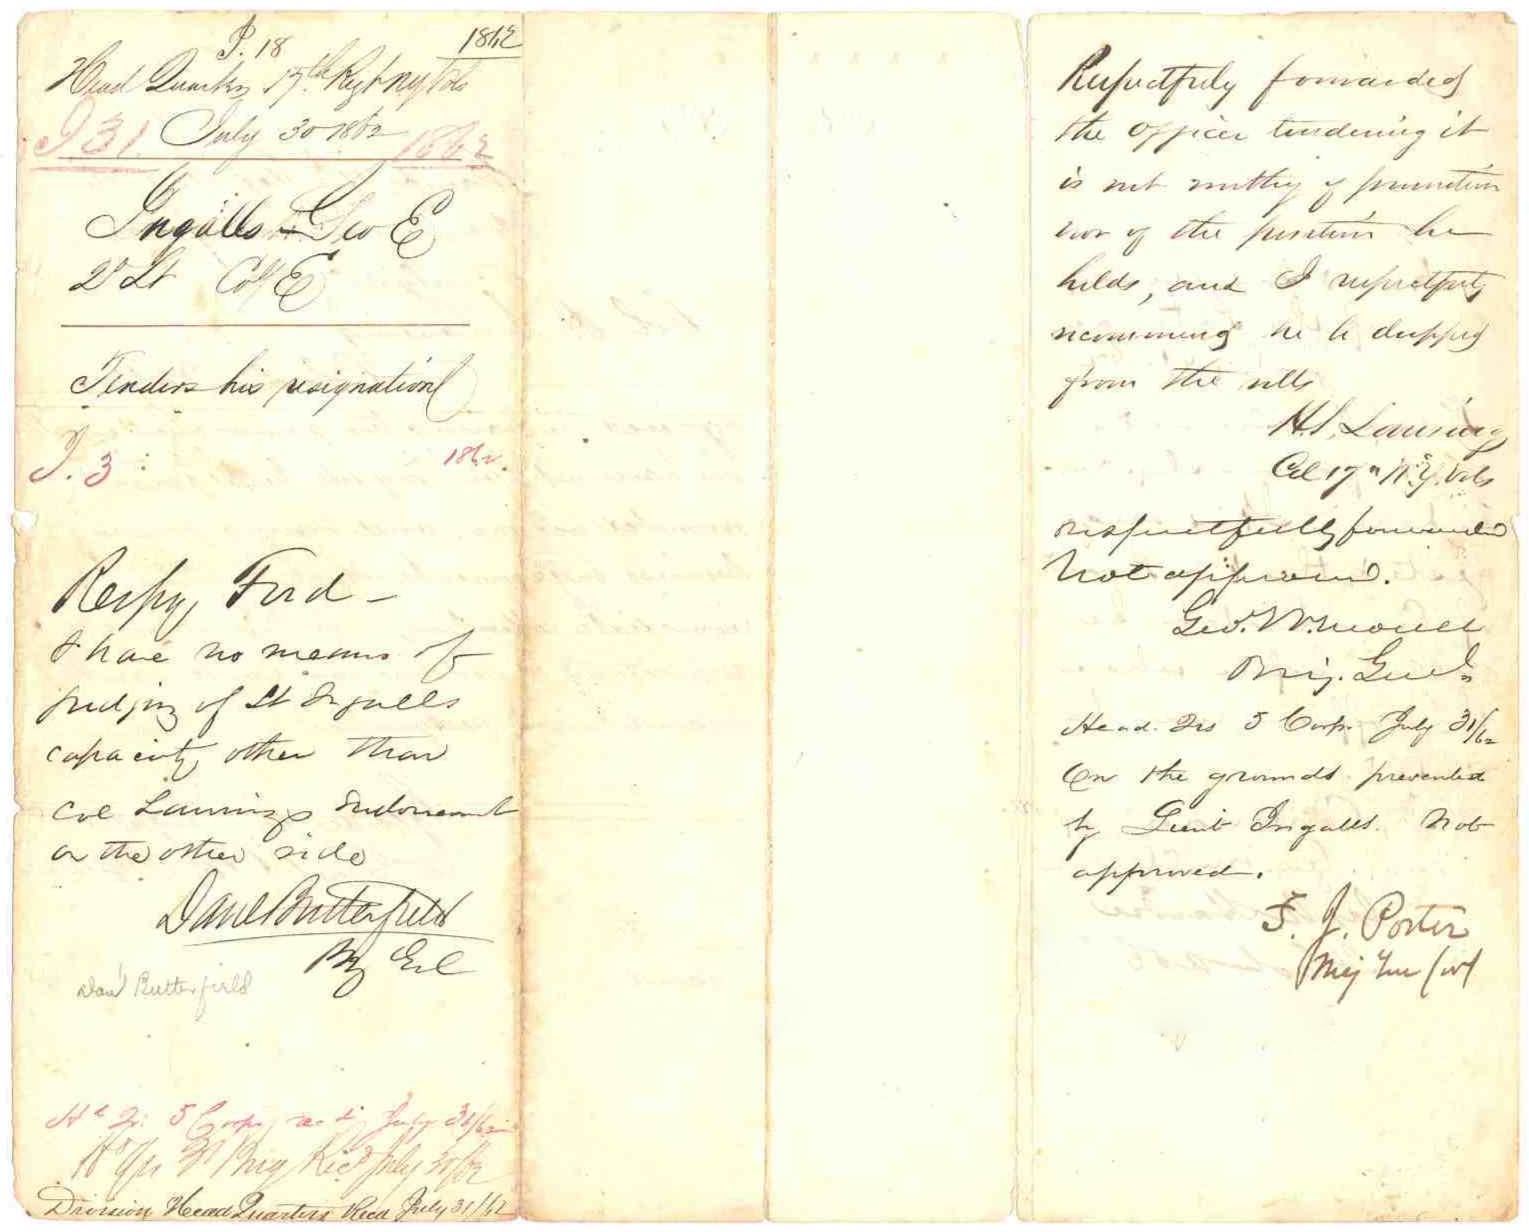 P. 18 1862
Head Quarters 17th Regt NY Vols
I 31 July 30 1862 1862
Ingalls Geo E
2d Lt Co E
Tenders his resignation
I. 3 1862.
Respy Ford -
I have no means of
judging of Lt Ingalls
capacity other than
Col Lansings Endorsement
on the other side
Danl Butterfield
Brig Genl
Danl Butterfield
Hd Qr. 5 Corps recd July 31/62
Hd Qrs 3d Brig Recd July 30/62
Division Head Quarters Recd July 31/62
Respectfuly forwarded
the officer tendering it
is not worthy of promotion
nor of the position he
holds, and I respectfuly
recommend he be dropped
from the rolls
H. S. Lansing
Col 17th N.Y. Vols
respectfully forwarded
Not approved.
Geo. W. Morell
Brig. Genl.
Head. Qrs 5 Corps. July 31/62
On the grounds presented
by Lieut Ingalls. Not
approved.
F. J. Porter
Maj Gen Col